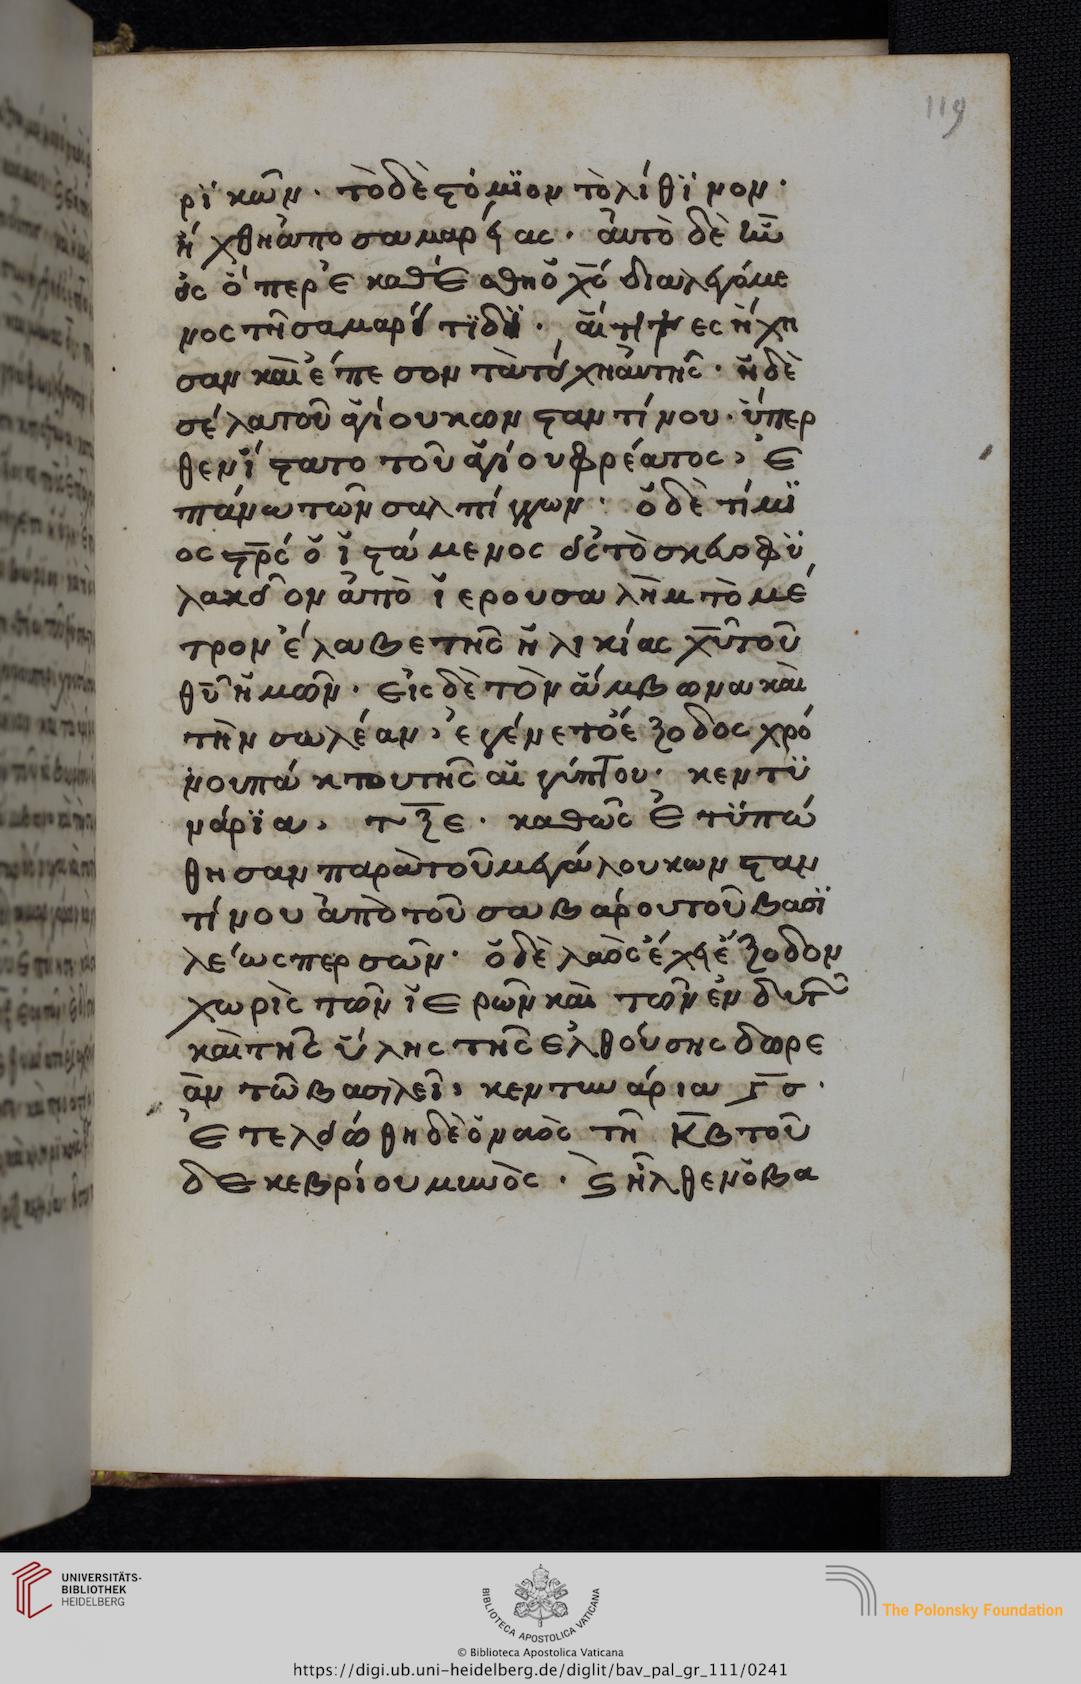 119
ρϊκῶν· τὸ δὲ στόμϊον τὸ λίθϊνον·
ἤχθη ἀπο σαμαρείας· ἀυτὸ δὲ ἐῶ
εἰς ὅπερ ἐκαθέσθη ὁ χς διαλεγόμε
νος τῆ σαμαρείτϊδι·
σαν καὶ ἔπεσον τὰ τείχη ἀυτῆς· ἡ δὲ
σέλα τοῦ ἁγίου κωνσταντίνου· ὑπερ
θεν ἵστατο τοῦ ἁγίου φρέατος, ἐ
πάνω τῶν σαλπίγγων· ὁ δὲ τίμϊ
ος στρς ὁ ἱστάμενος εἰς τὸ σκευοφϋ
λακεῖον ἀπὸ ἱερουσαλὴμ τὸ μέ
τρον ἔλαβε τῆς ἡλικίας χυ τοῦ
θυ ἡμῶν· εἰς δὲ τὸν ἄμβωνα καὶ
τὴν σωλέαν, ἐγένετο ἔξοδος χρό
νου πάκτου τῆς αἰγύπτου· κεντϋ
νάρϊα, τξε· καθῶς ἐτϋπώ
θησαν παρὰ τοῦ μεγάλου κωνσταν
τίνου ἀπὸ τοῦ σαβάρου τοῦ βασϊ
λείως περσῶν· ὁ δὲ λαὸς ἔχει ἔξοδον
χωρὶς τῶν ἱερῶν καὶ τῶν ἐν δυτ
καὶ τῆς ὕλης τῆς ἐλθούσης δωρε
ὰν τῶ βασιλεῖ, κεντινάρια
ἐτελειώθη δὲ ὁ ναὸς τῆ κβ του
δεκεβρίου μινὸς· ϛ ἦλθεν ὁ βα
UNIVERSITÄTS-
BIBLIOTHEK
HEIDELBERG
BIBLIOTECA APOSTOLICA VATICANA
The Polonsky Foundation
© Biblioteca Apostolica Vaticana
https://digi.ub.uni-heidelberg.de/diglit/bav_pal_gr_111/0241